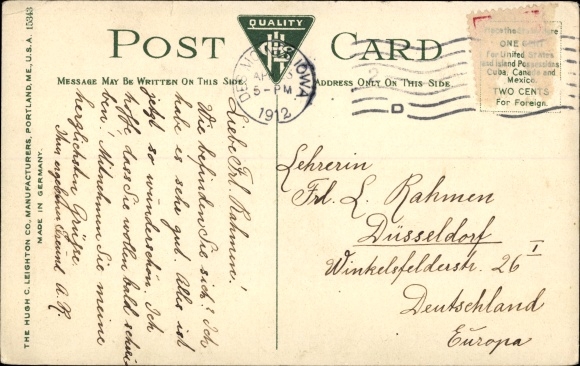 POST CARD
QUALITY
MESSAGE MAY BE WRITTEN ON THIS SIDE
ADDRESS ONLY ON THIS SIDE
DES MOINES, IOWA
5-PM
1912
D
ONE CENT
For United States
and Island Possessions
Cuba, Canada and
Mexico.
TWO CENTS
For Foreign.
Liebe Frl. Rahmen!
Wie befinden Sie sich? Ich
habe es sehr gut. Alles ist
jetzt so wunderschön. Ich
hoffe, dass Sie wollen bald schrei-
ben. Mitnehmen Sie meine
herzlichsten Grüsse.
Ihr Freund A. R.
Lehrerin
Frl. L. Rahmen
Düsseldorf
Winkelsfelderstr. 26 I
Deutschland
Europa
THE HUGH C. LEIGHTON CO., MANUFACTURERS, PORTLAND, ME., U.S.A. 15343
MADE IN GERMANY.